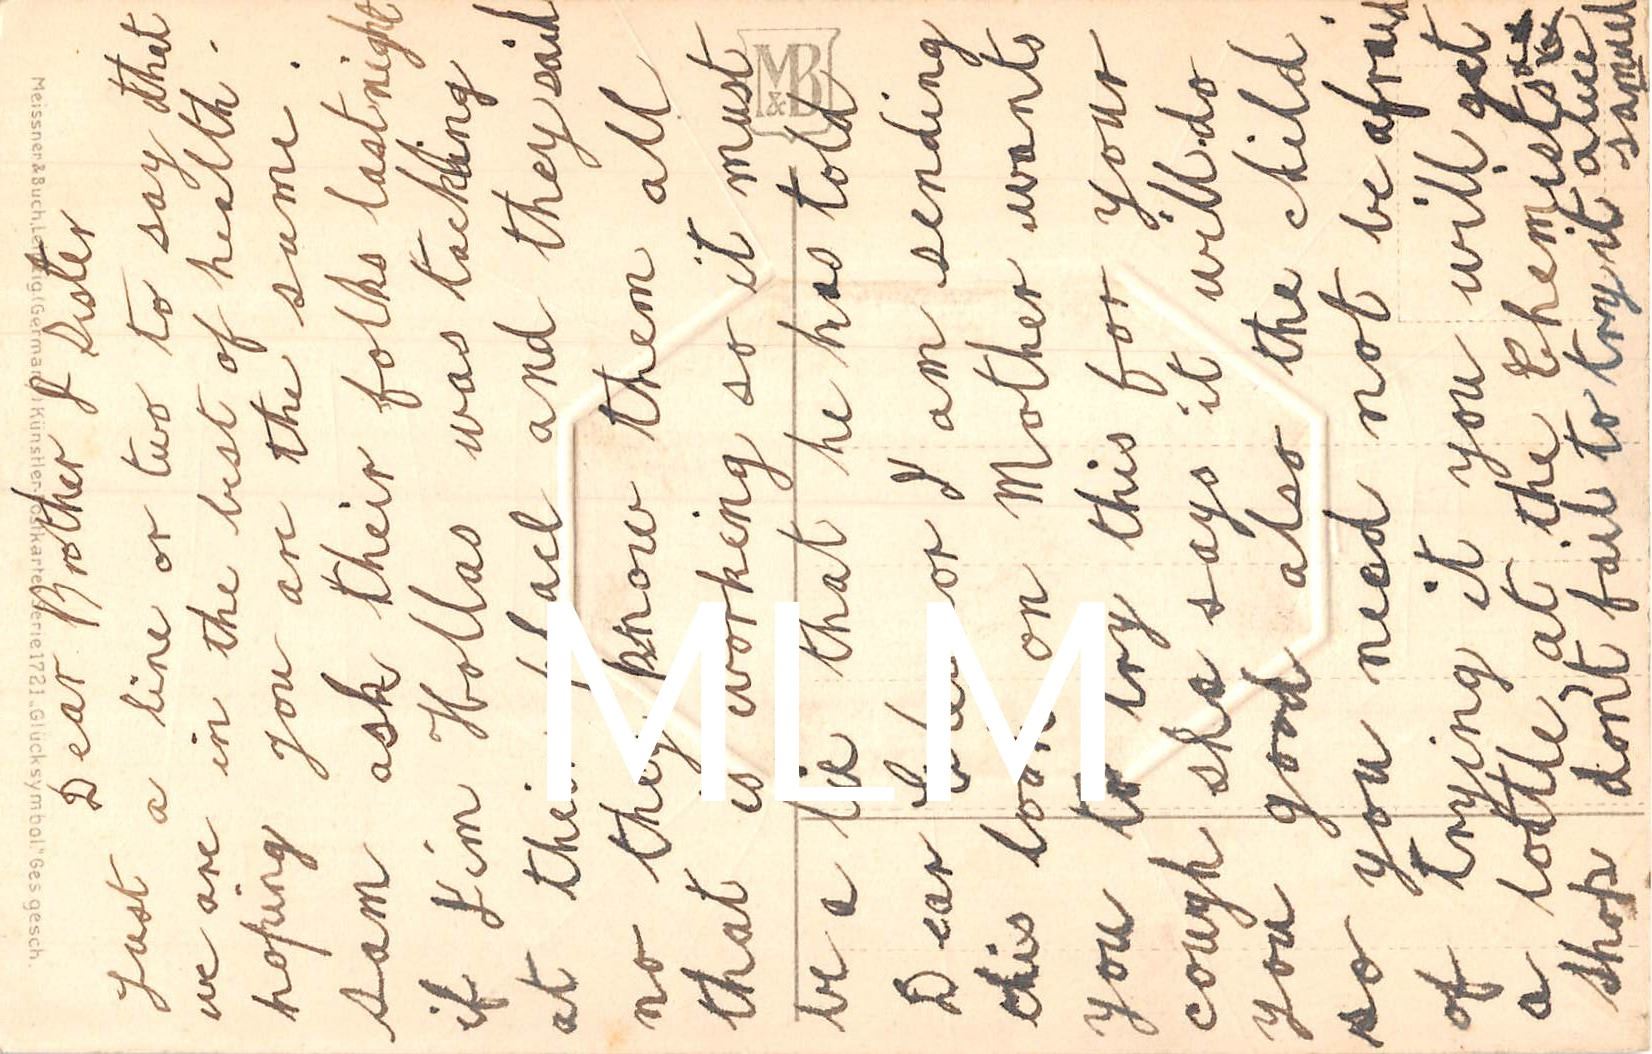 Dear Brother & Sister
Just a line or two to say that
we are in the best of health.
hoping you are the same.
Sam ask their folks last night
if Jim Hollas was tacking
at their and they said
no they know them all
that is working so it must
be a lie that he has told
Dear or I am sending
this on Mother wants
you to try this for your
cough she says it will do
you good also the child
so you need not be afraid
of trying it you will get
a bottle at the Chemists
shop don't fail to try it alice
samuel
Meissner & Buch, Leipzig (Germany) Künstler-Postkarten Serie 1721 „Glücksymbol." Ges gesch.
M&B
MLM